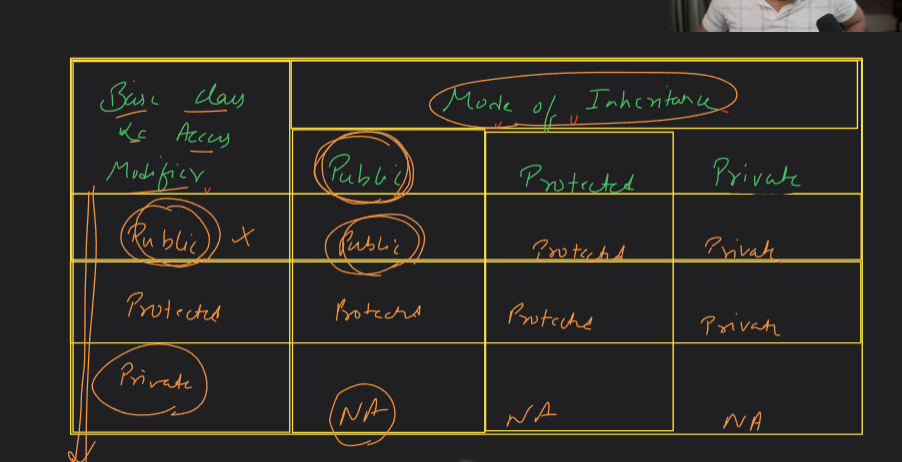 Base class
Ke Access
Modifier
Mode of Inheritance
Public Protected Private
Public x Public Protected Private
Protected Protected Protected Private
Private NA NA NA